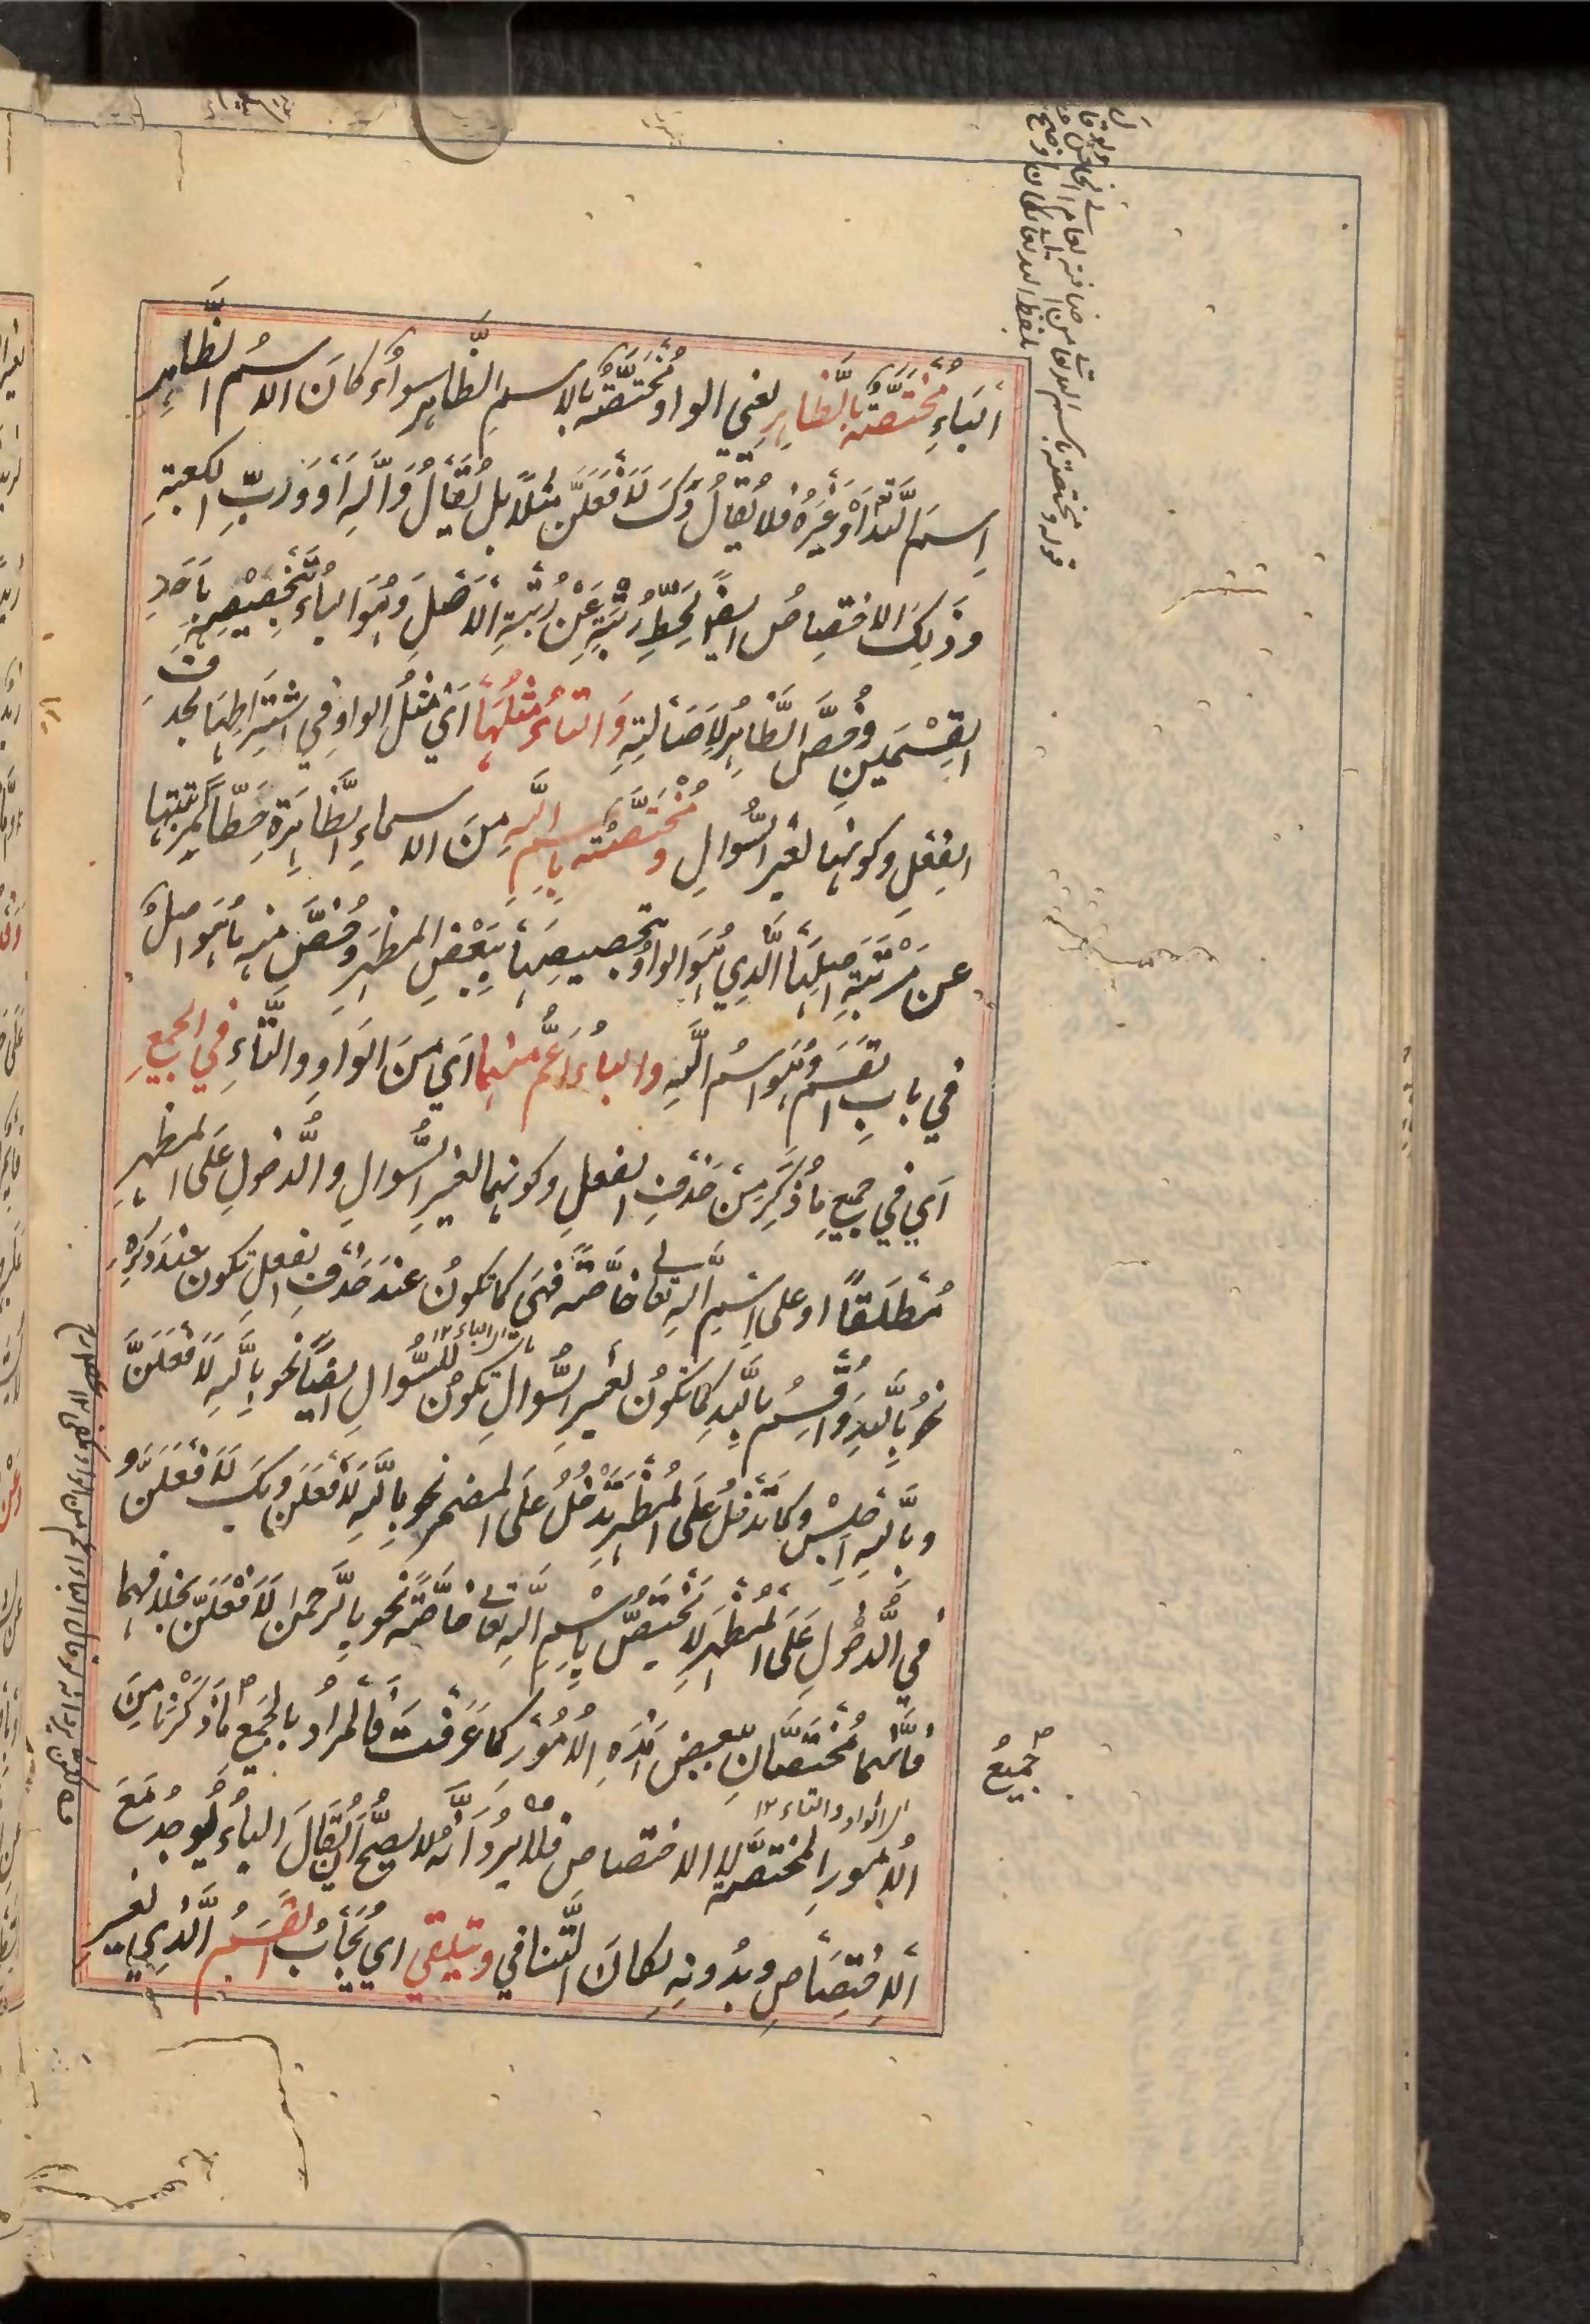 الباءِ مُخْتَصَّةٌ بالظَّاهِرِ يعني الواو مُخْتَصَّةٌ بالاسمِ الظَّاهرِ سواءٌ كانَ الاسمُ الظَّاهِرُ
اِسمَ اللّٰهِ أَوْ غَيْرَهُ فلا يُقالُ وَكَ لَأَفْعَلَنَّ مَثَلًا بل يُقَالُ وَاللّٰهِ أَوْ وَرَبِّ الكعبةِ
وذَلِكَ الاختِصاصُ ايضًا لِحَطِّ رُتْبَتِهِ عَنْ رُتْبَةِ الأَصْلِ وَهُوَ الباءُ بِتَخْصِيْصِهِ بِأَحَدِ
القِسْمَينِ وخُصَّ الظَّاهِرُ لِاَصَالَتِهِ وَالتاءُ مِثْلُهَا اَيْ مِثْلُ الواوِ في اشْتِرَاطِهَا بحذف
الفِعْلِ وكونِها لغير السُّوالِ ومُخْتَصَّةٌ بِاسمِ اللّٰهِ مِنَ الاسماءِ الظَّاهِرَةِ حَطًّا لِمَرْتَبَتِها
عن مَرْتَبَةِ اصلِهَا الَّذِي هُوَ الواوُ بتخصيصِهَا بِبَعْضِ المظهَرِ وخُصَّ منه ما هُوَ اصلٌ
في بابِ القَسَمِ وَهُوَ اسمُ اللّٰهِ والباءُ اَعَمُّ منهما اَي مِنَ الوَاوِ والتَّاءِ في الجميعِ
اَي في جميعِ ما ذُكِرَ مِنْ حَذْفِ الفعلِ وكونِها لغيرِ السُّوالِ والدُّخولِ عَلَى المظهرِ
مُطْلَقًا او على اسْمِ اللّٰهِ تعالى خاصَّةً فهيَ كما تكونُ عندَ حَذْفِ الفعلِ تكون عندَ ذِكرِه
نحوُ بِاللّٰهِ وَاُقْسِمُ بِاللّٰهِ كما تكونُ لغيرِ السُّوالِ تكونُ للسُّوالِ ايضًا نحو بِاللّٰهِ لَأَفْعَلَنَّ
وبِاللّٰهِ اجْلِسْ وكما تدخلُ عَلَى المُظْهَرِ تَدْخُلُ عَلَى المضمرِ نحو بِاللّٰهِ لَأَفْعَلَنَّ وبِكَ لَأَفْعَلَنَّ و
في الدُّخولِ عَلَى المُظْهَرِ لا تَخْتَصُّ بِاسْمِ اللّٰهِ تعالى خاصَّةً نحو بالرَّحمن لَأَفْعَلَنَّ بخلافهما
فانَّهما مُخْتَصَّانِ ببعض هٰذِهِ الأُمُورِ كما عَرَفْتَ فالمُرادُ بالجَمِيعِ ما ذَكَرْنَا مِنَ
جميعُ
اى الواو والتاء ١٢
الأُمورِ المختصَّة لا الاختصاص فلا يرد اَنَّهُ لا يصحُّ اَنْ يُقالَ الباءُ يُوجَدُ مَعَ
الاِخْتِصَاصِ وبدُونِهِ لمكانَ التَّنافي ويتلقى اي يُجَابُ القَسَمُ الَّذِي لغيرِ